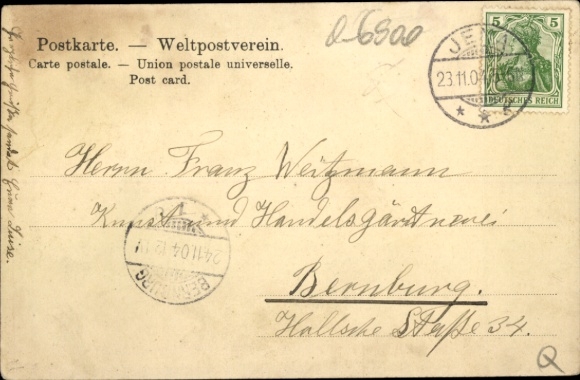 Postkarte. — Weltpostverein.
Carte postale. — Union postale universelle.
Post card.
Q-6900
5 5
DEUTSCHES REICH
JENA
23.11.04
Herrn Franz Weitzmann
Kunst und Handelsgärtnerei
Bernburg.
Hallsche Straße 34.
BERNBURG
24.11.04
sendet Eure Luise.
Q